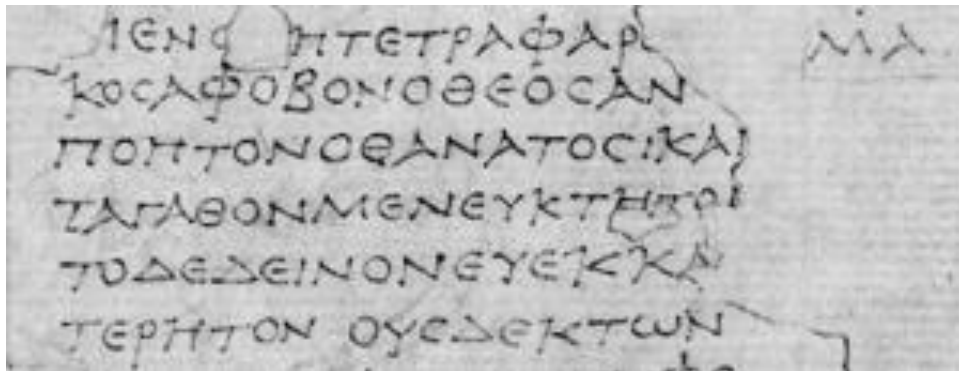 ΙΕΝΟ ΗΤΕΤΡΑΦΑΡ ΜΙΑ
ΚΟCΑΦΟΒΟΝΟΘΕΟCΑΝ
ΠΟΗΤΟΝΟΘΑΝΑΤΟCΚΑΙ
ΤΑΓΑΘΟΝΜΕΝΕΥΚΤΗΤΟΝ
ΤΟΔΕΔΕΙΝΟΝΕΥΕΚΚΑ
ΤΕΡΗΤΟΝ ΟΥCΔΕΚΤΩΝ